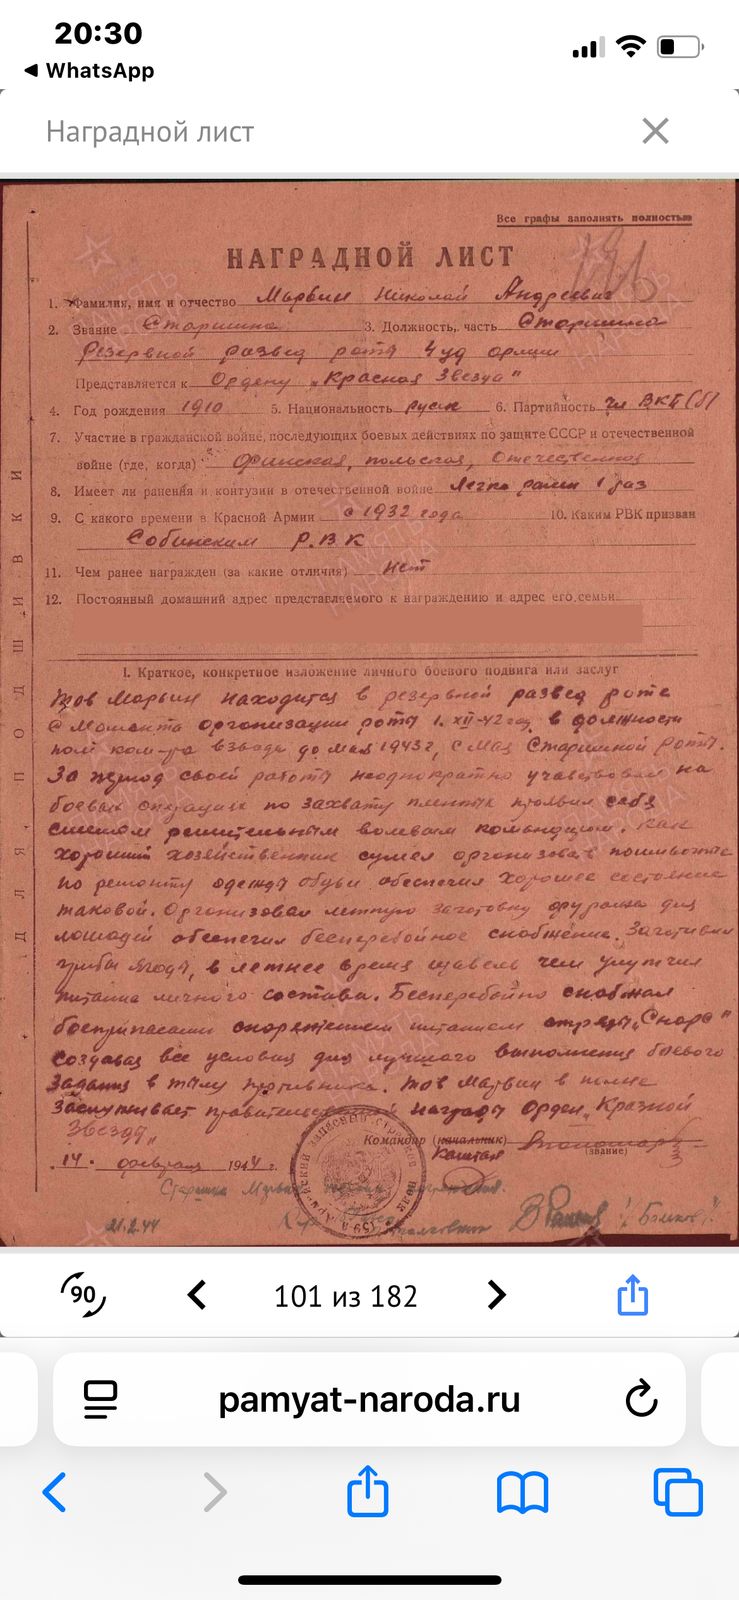 20:30
WhatsApp
Наградной лист
Все графы заполнять полностью
НАГРАДНОЙ ЛИСТ
1. Фамилия, имя и отчество Марвин Николай Андреевич
2. Звание Старшина 3. Должность, часть Старшина
Резервной развед роты 4 уд армии
Представляется к Ордену „Красная Звезда"
4. Год рождения 1910 5. Национальность русск 6. Партийность чл ВКП(б)
7. Участие в гражданской войне, последующих боевых действиях по защите СССР и отечественной
войне (где, когда) Финская, польская, Отечественная
8. Имеет ли ранения и контузии в отечественной войне Легко ранен 1 раз
9. С какого времени в Красной Армии с 1932 года 10. Каким РВК призван
Собинским Р.В.К
11. Чем ранее награжден (за какие отличия) нет
12. Постоянный домашний адрес представляемого к награждению и адрес его семьи
ДЛЯ ПОДШИВКИ
I. Краткое, конкретное изложение личного боевого подвига или заслуг
тов Марвин находится в резервной развед роте
с момента организации роты 1.XII-42 год в должности
пом ком-ра взвода до мая 1943г, с мая Старшиной роты.
За период своей работы неоднократно учавствовал на
боевых операциях по захвату пленных проявил себя
смелым решительным волевым командиром. как
хороший хозяйственник сумел организовать
по ремонту одежды обуви обеспечил хорошее состояние
таковой. Организовал летнюю заготовку фуража для
лошадей обеспечил бесперебойное снабжение. Заготовил
грибы ягоды, в летнее время щавель чем улучшил
питание личного состава. Бесперебойно снабжал
боеприпасами снаряжением питанием отряды
создавая все условия для лучшего выполнения боевого
задания в тылу противника. тов Марвин в полне
заслуживает правительственной награды Орден „Красной
Звезды"
Командир (начальник)
капитан (звание)
14 февраля 1944 г.
Старшина
21.2.44
полковник
101 из 182
90
pamyat-naroda.ru